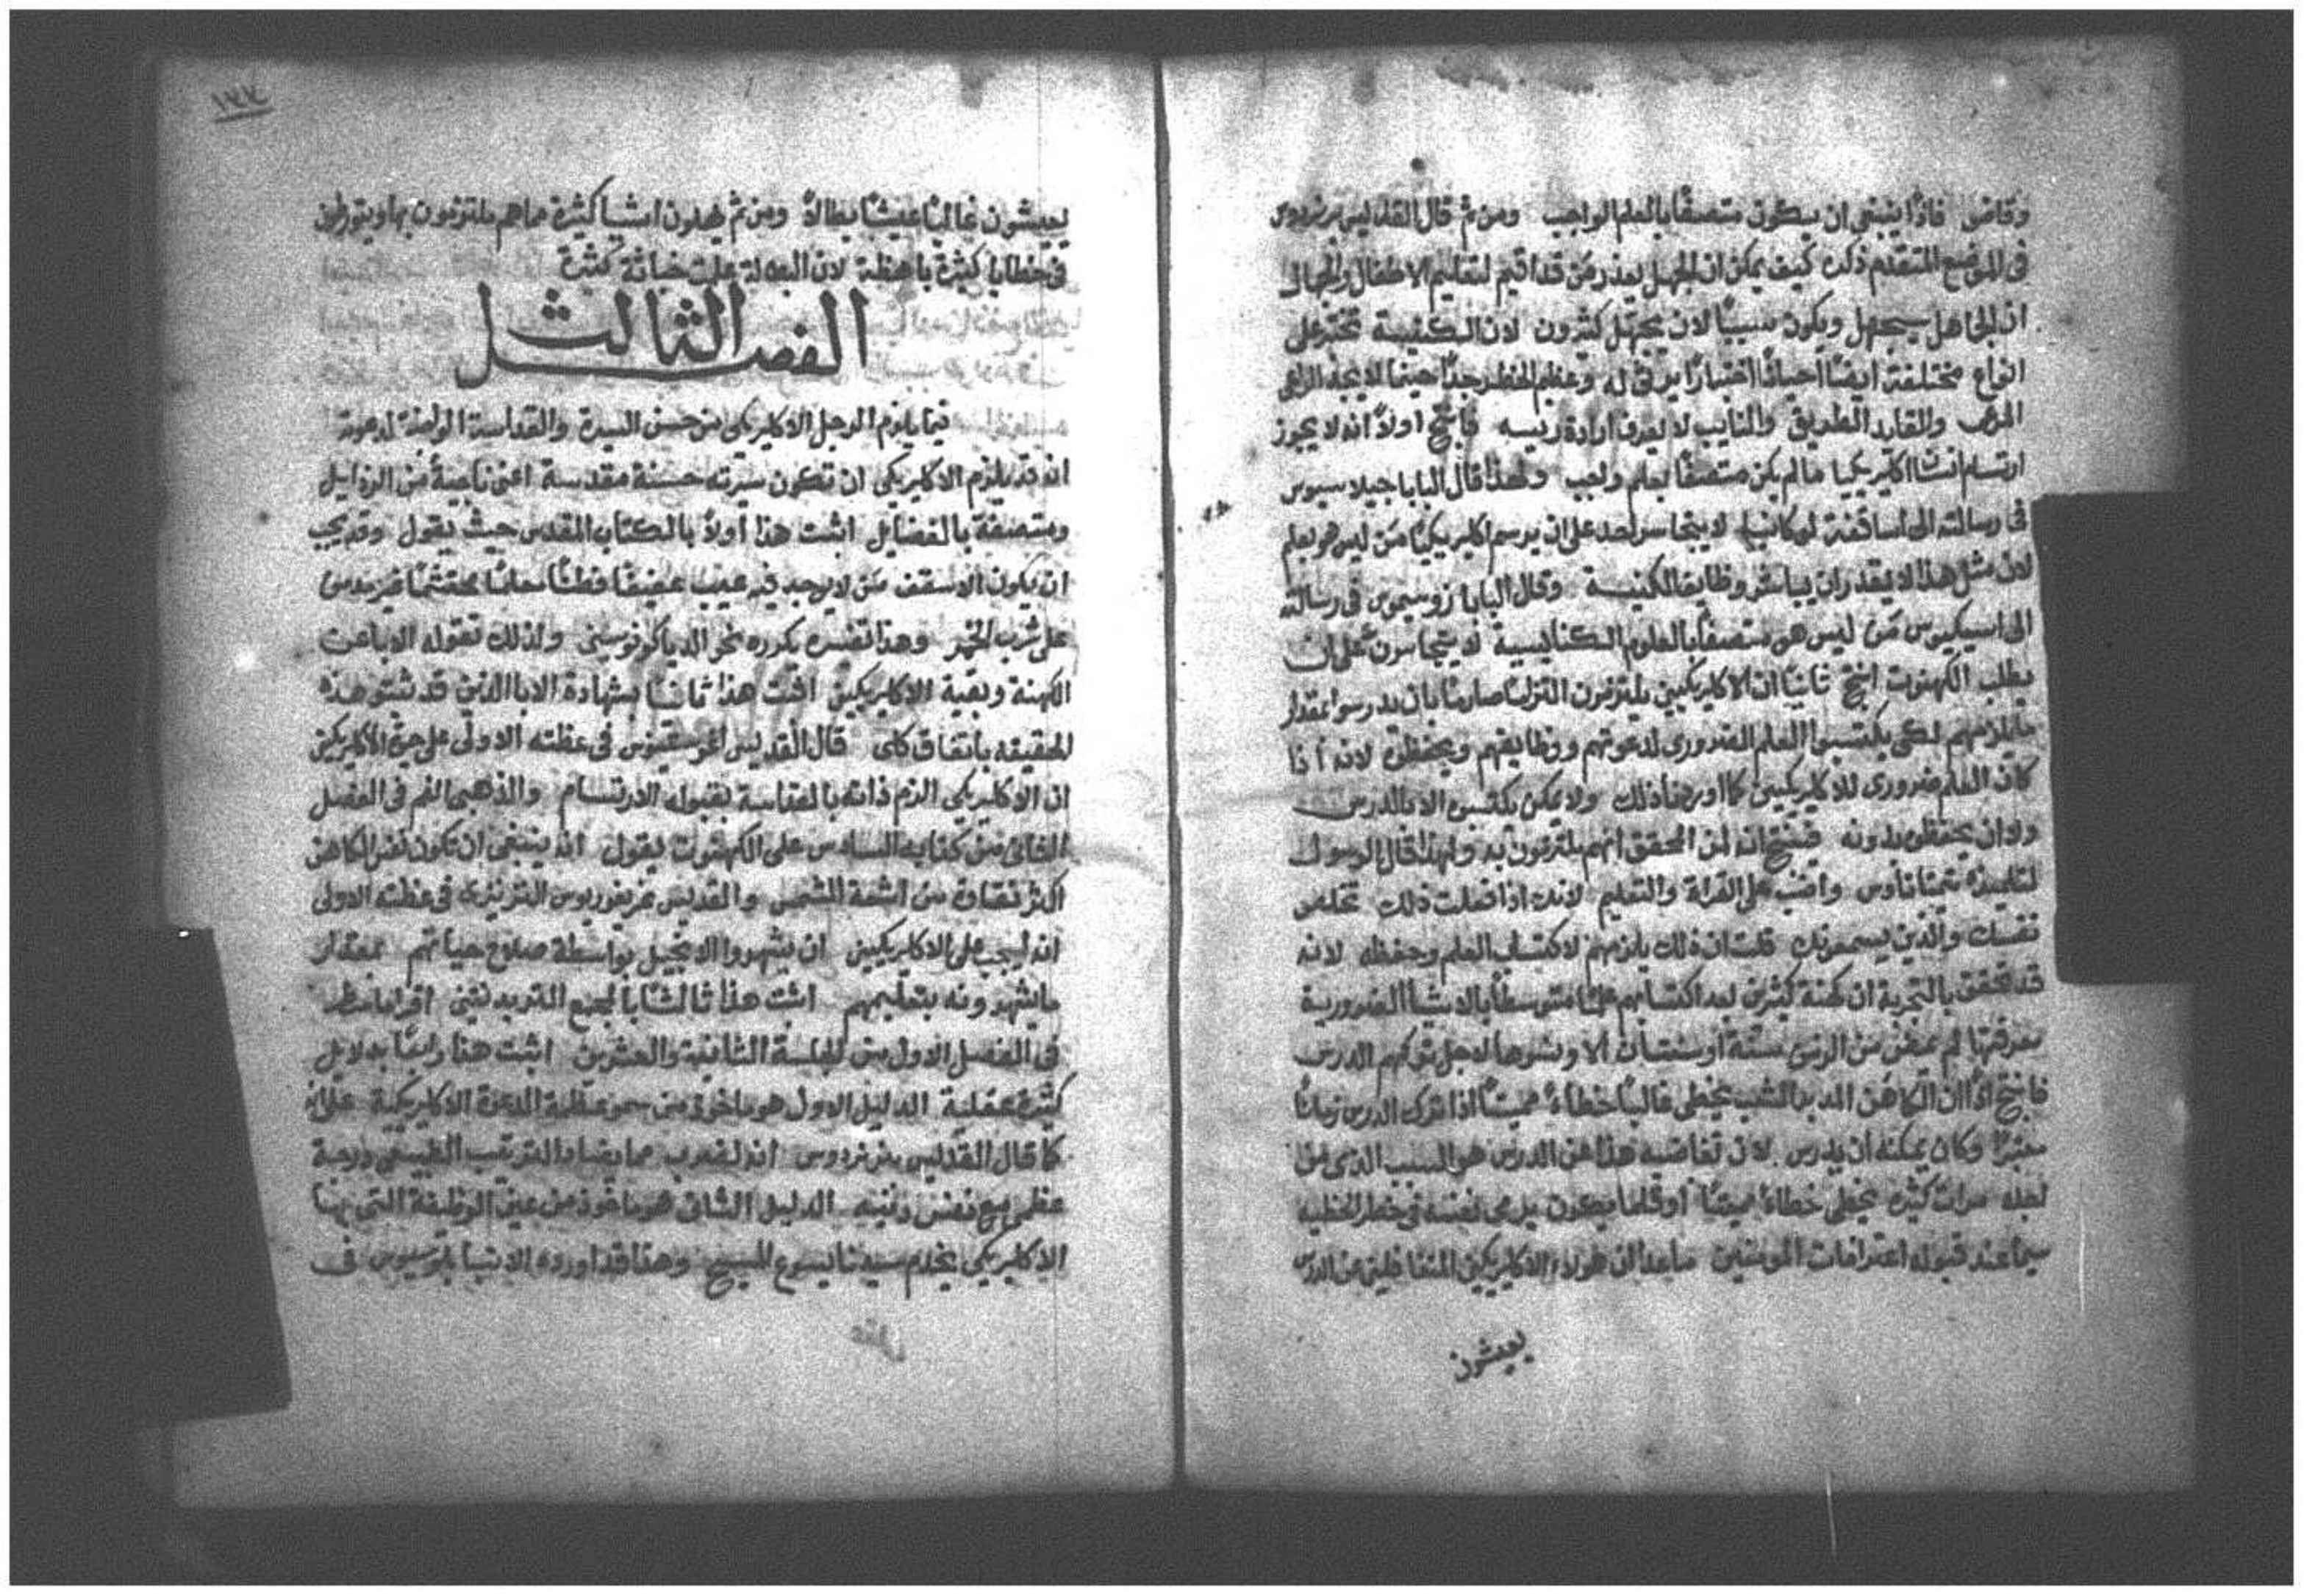 وقاضى فاذًا ينبغي ان يكون متصفًا بالعلم الواجب ومن ثم قال القديس برنردوس
في الموضع المتقدم ذكره كيف يمكن ان الجهل يعذر من قد اقيم لتعليم الاطفال والجهال
ان الجاهل سيجهل ويكون سببًا لان يجهل كثيرون لان الكنيسة تحتوي على
انواع مختلفة ايضًا احيانًا وعظيم الخطر جدًا حينما لا يجد الراعي
المرعى والقايد الطريق والنايب لا يعرف ارادة رييسه فانتج اولًا انه لا يجوز
ارتسام اكليريكيا ما لم يكن متصفًا بعلم واجب ولهذا قال البابا جيلاسيوس
في رسالته الى اساقفة لوكانيا لا يتجاسر احد على ان يرسم اكليريكيًا من ليس هو بعلم
لان مثل هذا لا يقدر ان يباشر وظايف الكنيسة وقال البابا زوسيموس في رسالته
الى اسيكيوس من ليس هو متصفًا بالعلوم الكنايسية لا يتجاسرن على ان
يطلب الكهنوت انتج ثانيًا ان الاكليريكيين يلتزمون التزامًا صارمًا بان يدرسوا بمقدار
ما يلزمهم لكي يكتسبوا العلم الضروري لدعوتهم ووظايفهم ويحفظوه لانه اذا
كان العلم ضروري للاكليريكيين كما اوردنا ذلك ولا يمكن يكتسبوه الا بالدرس
ولا ان يحفظوه بدونه فينتج انه لمن المحقق انهم يلتزمون به ولهذا قال الرسول
لتلميذه تيموتاوس واضب على القراة والتعليم لانك اذا فعلت ذلك تخلص
نفسك والذين يسمعونك قلت ان ذلك يلزمهم لاكتساب العلم وحفظه لانه
قد تحقق بالتجربة ان كهنة كثيرين بعد اكتسابهم علمًا متوسطًا بالاشيا الضرورية
معرفتها لم يمضى من الزمن سنة او سنتان الا ونسوها لاجل تركهم الدرس
فانتج اذًا ان الكاهن المدبر الشعب يخطي غالبًا خطاءً مميتًا اذا ترك الدرس زمانًا
معتبرًا وكان يمكنه ان يدرس لان تغاضيه هذا عن الدرس هو السبب الذي من
اجله مرات كثيرة يخطي خطاءً مميتًا او قلما يكون يرمي نفسه في خطر الخطية
سيما عند قبوله اعترافات المومنين ما عدا ان هولاء الاكليريكيين المتغافلين عن الدرس
يعيشون
١٢٤
يعيشون غالبًا عيشًا بطالًا ومن ثم يهملون اشيا كثيرة مما هم ملتزمون بها ويتورطون
في خطايا كثيرة باهظة لان البطالة علمت خباثة كثيرة
الفصل الثالث
فيما يلزم الرجل الاكليريكي من حسن السيرة والقداسة الواجبة لدعوته
انه قد يلزم الاكليريكي ان تكون سيرته حسنة مقدسة اعني ناجية من الرذايل
ومتصفة بالفضايل اثبت هذا اولًا بالكتاب المقدس حيث يقول وقد يجب
ان يكون الاسقف من لا يوجد فيه عيب عفيفًا فطنًا معلمًا محتشمًا غير مدمن
على شرب الخمر وهذا نفسه يكرره نحو الدياكونوسيين ولذلك تقوله الابا عن
الكهنة وبقية الاكليريكيين اثبت هذا ثانيًا بشهادة الابا الذين قد ثبتوا هذه
الحقيقه باتفاق كلي قال القديس اغوستينوس في عظته الاولى على سيرة الاكليريكيين
ان الاكليريكي الزم ذاته بالقداسة بقبوله الارتسام والذهبي الفم في الفصل
الثاني من كتابه السادس على الكهنوت يقول انه ينبغي ان تكون نفس الكاهن
اكثر نقاوة من اشعة الشمس والقديس غريغوريوس النزينزي في عظته الاولى
انه ليجب على الاكليريكيين ان يشهروا الانجيل بواسطة صلاح حياتهم بمقدار
ما يشهرونه بتعليمهم اثبت هذا ثالثًا بالمجمع التريدنتيني اقرا ما سطر
في الفصل الاول من الجلسة الثانية والعشرين اثبت هذا رابعًا بدلايل
كثيرة عقلية الدليل الاول هو ماخوذ من سمو عظمة الدعوة الاكليريكية على انه
كما قال القديس برنردوس انه لغريب مما يضاد الترتيب الطبيعي درجة
عظمى مع نفس دنيه الدليل الثاني هو ماخوذ من عين الوظيفة التي بها
الاكليريكي يخدم سيدنا يسوع المسيح وهذا قد اورده الانبا بلوسيوس في